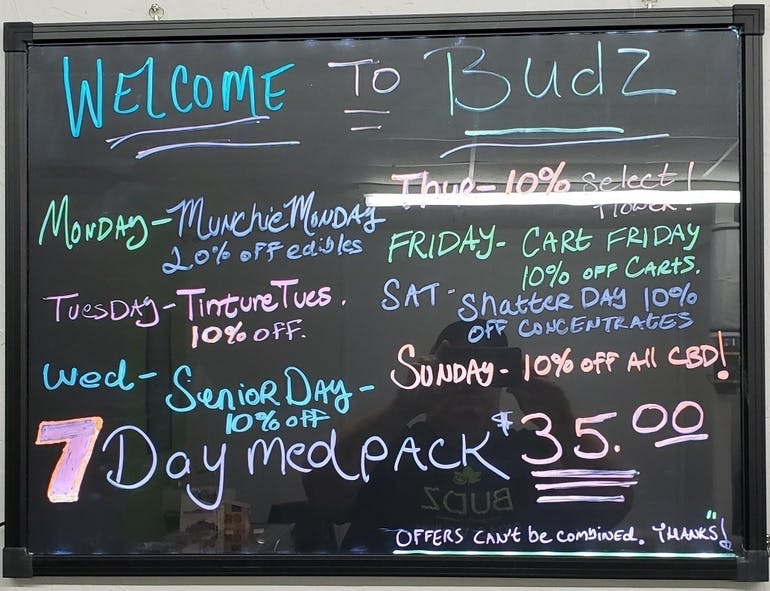 WELCOME TO BudZ
MONDAY - MunchieMONDAY
20% off edibles
TuesDAY - TintureTues.
10% OFF.
Wed - Senior DAY -
10% off
Thur - 10% Select
flower!
FRIDAY - CART FRIDAY
10% OFF CARTS.
SAT - Shatter DAY 10%
OFF CONCENTRATES
SUNDAY - 10% off All CBD!
7 Day medPACK $35.00
OFFERS CAN'T be combined. THANKS!
BUDZ